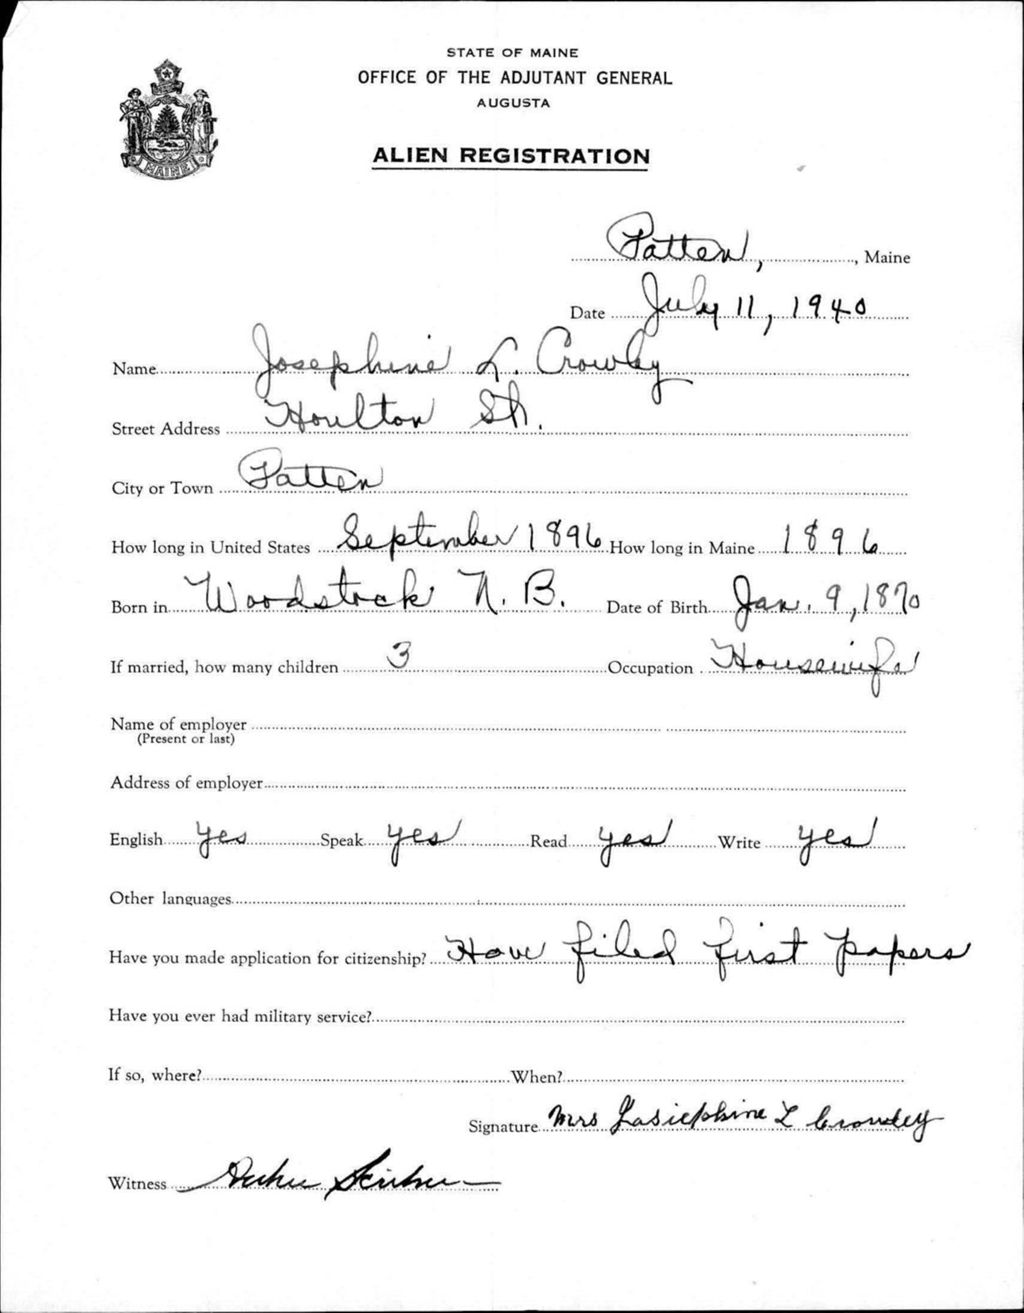 STATE OF MAINE
OFFICE OF THE ADJUTANT GENERAL
AUGUSTA
MAINE
ALIEN REGISTRATION
Patten, , Maine
Date July 11, 1940
Name Josephine L. Crowley
Street Address Houlton St.
City or Town Patten
How long in United States September 1896 How long in Maine 1896
Born in Woodstock N. B. Date of Birth Jan. 9, 1870
If married, how many children 3 Occupation Housewife
Name of employer
(Present or last)
Address of employer
English yes Speak yes Read yes Write yes
Other languages
Have you made application for citizenship? Have filed first papers
Have you ever had military service?
If so, where? When?
Signature Mrs L Crowley
Witness